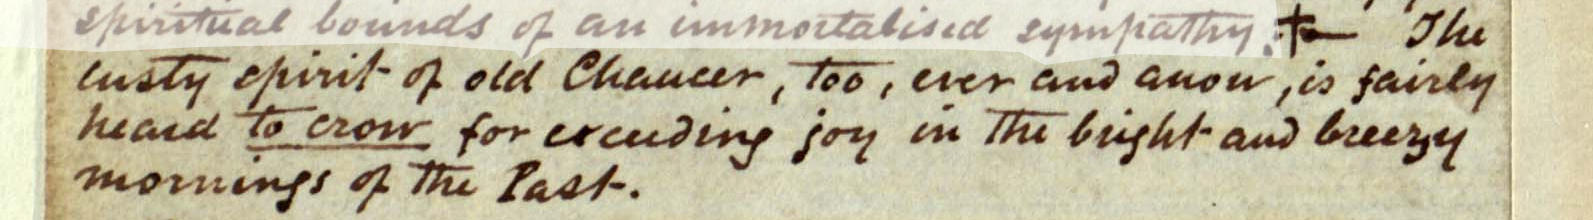 spiritual bounds of an immortalised sympathy.‡— The
lusty spirit of old Chaucer, too, ever and anon, is fairly
heard to crow for exceeding joy in the bright and breezy
mornings of the Past.